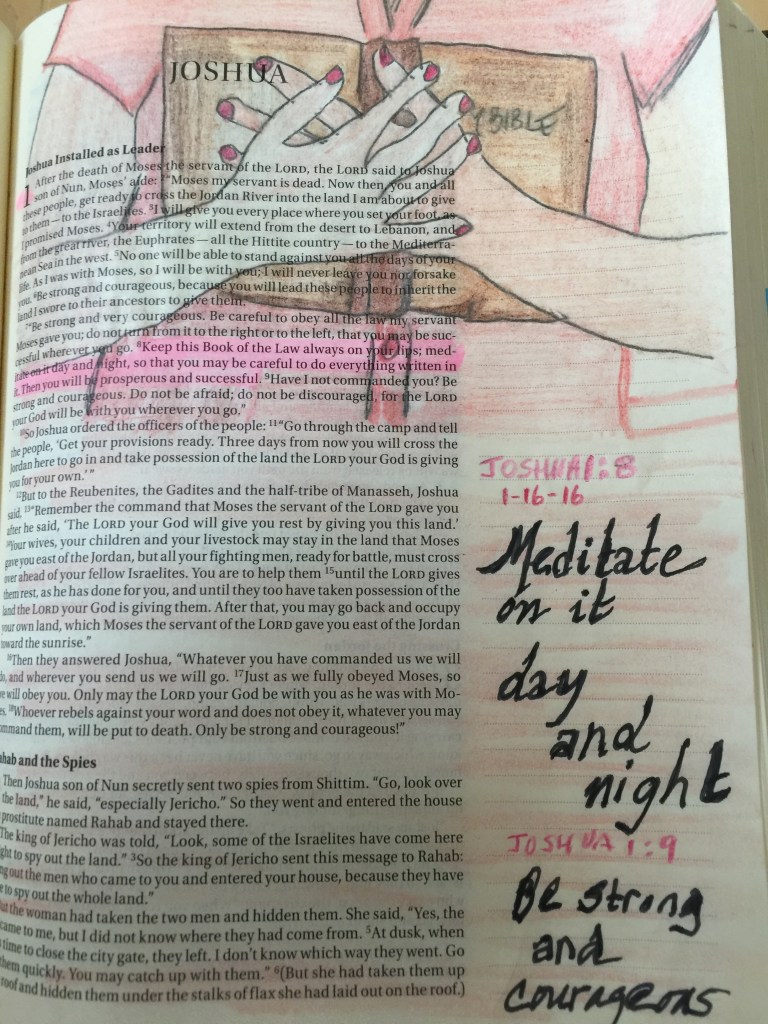 JOSHUA
BIBLE
Joshua Installed as Leader
1 After the death of Moses the servant of the LORD, the LORD said to Joshua
son of Nun, Moses' aide: 2"Moses my servant is dead. Now then, you and all
these people, get ready to cross the Jordan River into the land I am about to give
to them—to the Israelites. 3I will give you every place where you set your foot, as
I promised Moses. 4Your territory will extend from the desert to Lebanon, and
from the great river, the Euphrates—all the Hittite country—to the Mediterra-
nean Sea in the west. 5No one will be able to stand against you all the days of your
life. As I was with Moses, so I will be with you; I will never leave you nor forsake
you. 6Be strong and courageous, because you will lead these people to inherit the
land I swore to their ancestors to give them.
7"Be strong and very courageous. Be careful to obey all the law my servant
Moses gave you; do not turn from it to the right or to the left, that you may be suc-
cessful wherever you go. 8Keep this Book of the Law always on your lips; med-
itate on it day and night, so that you may be careful to do everything written in
it. Then you will be prosperous and successful. 9Have I not commanded you? Be
strong and courageous. Do not be afraid; do not be discouraged, for the LORD
your God will be with you wherever you go."
10So Joshua ordered the officers of the people: 11"Go through the camp and tell
the people, 'Get your provisions ready. Three days from now you will cross the
Jordan here to go in and take possession of the land the LORD your God is giving
you for your own.'"
12But to the Reubenites, the Gadites and the half-tribe of Manasseh, Joshua
said, 13"Remember the command that Moses the servant of the LORD gave you
after he said, 'The LORD your God will give you rest by giving you this land.'
14Your wives, your children and your livestock may stay in the land that Moses
gave you east of the Jordan, but all your fighting men, ready for battle, must cross
over ahead of your fellow Israelites. You are to help them 15until the LORD gives
them rest, as he has done for you, and until they too have taken possession of the
land the LORD your God is giving them. After that, you may go back and occupy
your own land, which Moses the servant of the LORD gave you east of the Jordan
toward the sunrise."
16Then they answered Joshua, "Whatever you have commanded us we will
do, and wherever you send us we will go. 17Just as we fully obeyed Moses, so
we will obey you. Only may the LORD your God be with you as he was with Mo-
es. 18Whoever rebels against your word and does not obey it, whatever you may
mmand them, will be put to death. Only be strong and courageous!"
ahab and the Spies
Then Joshua son of Nun secretly sent two spies from Shittim. "Go, look over
the land," he said, "especially Jericho." So they went and entered the house
prostitute named Rahab and stayed there.
The king of Jericho was told, "Look, some of the Israelites have come here
ght to spy out the land." 3So the king of Jericho sent this message to Rahab:
ng out the men who came to you and entered your house, because they have
e to spy out the whole land."
ut the woman had taken the two men and hidden them. She said, "Yes, the
came to me, but I did not know where they had come from. 5At dusk, when
time to close the city gate, they left. I don't know which way they went. Go
them quickly. You may catch up with them." 6(But she had taken them up
roof and hidden them under the stalks of flax she had laid out on the roof.)
JOSHUA 1:8
1-16-16
Meditate
on it
day
and
night
JOSHUA 1:9
Be strong
and
courageous